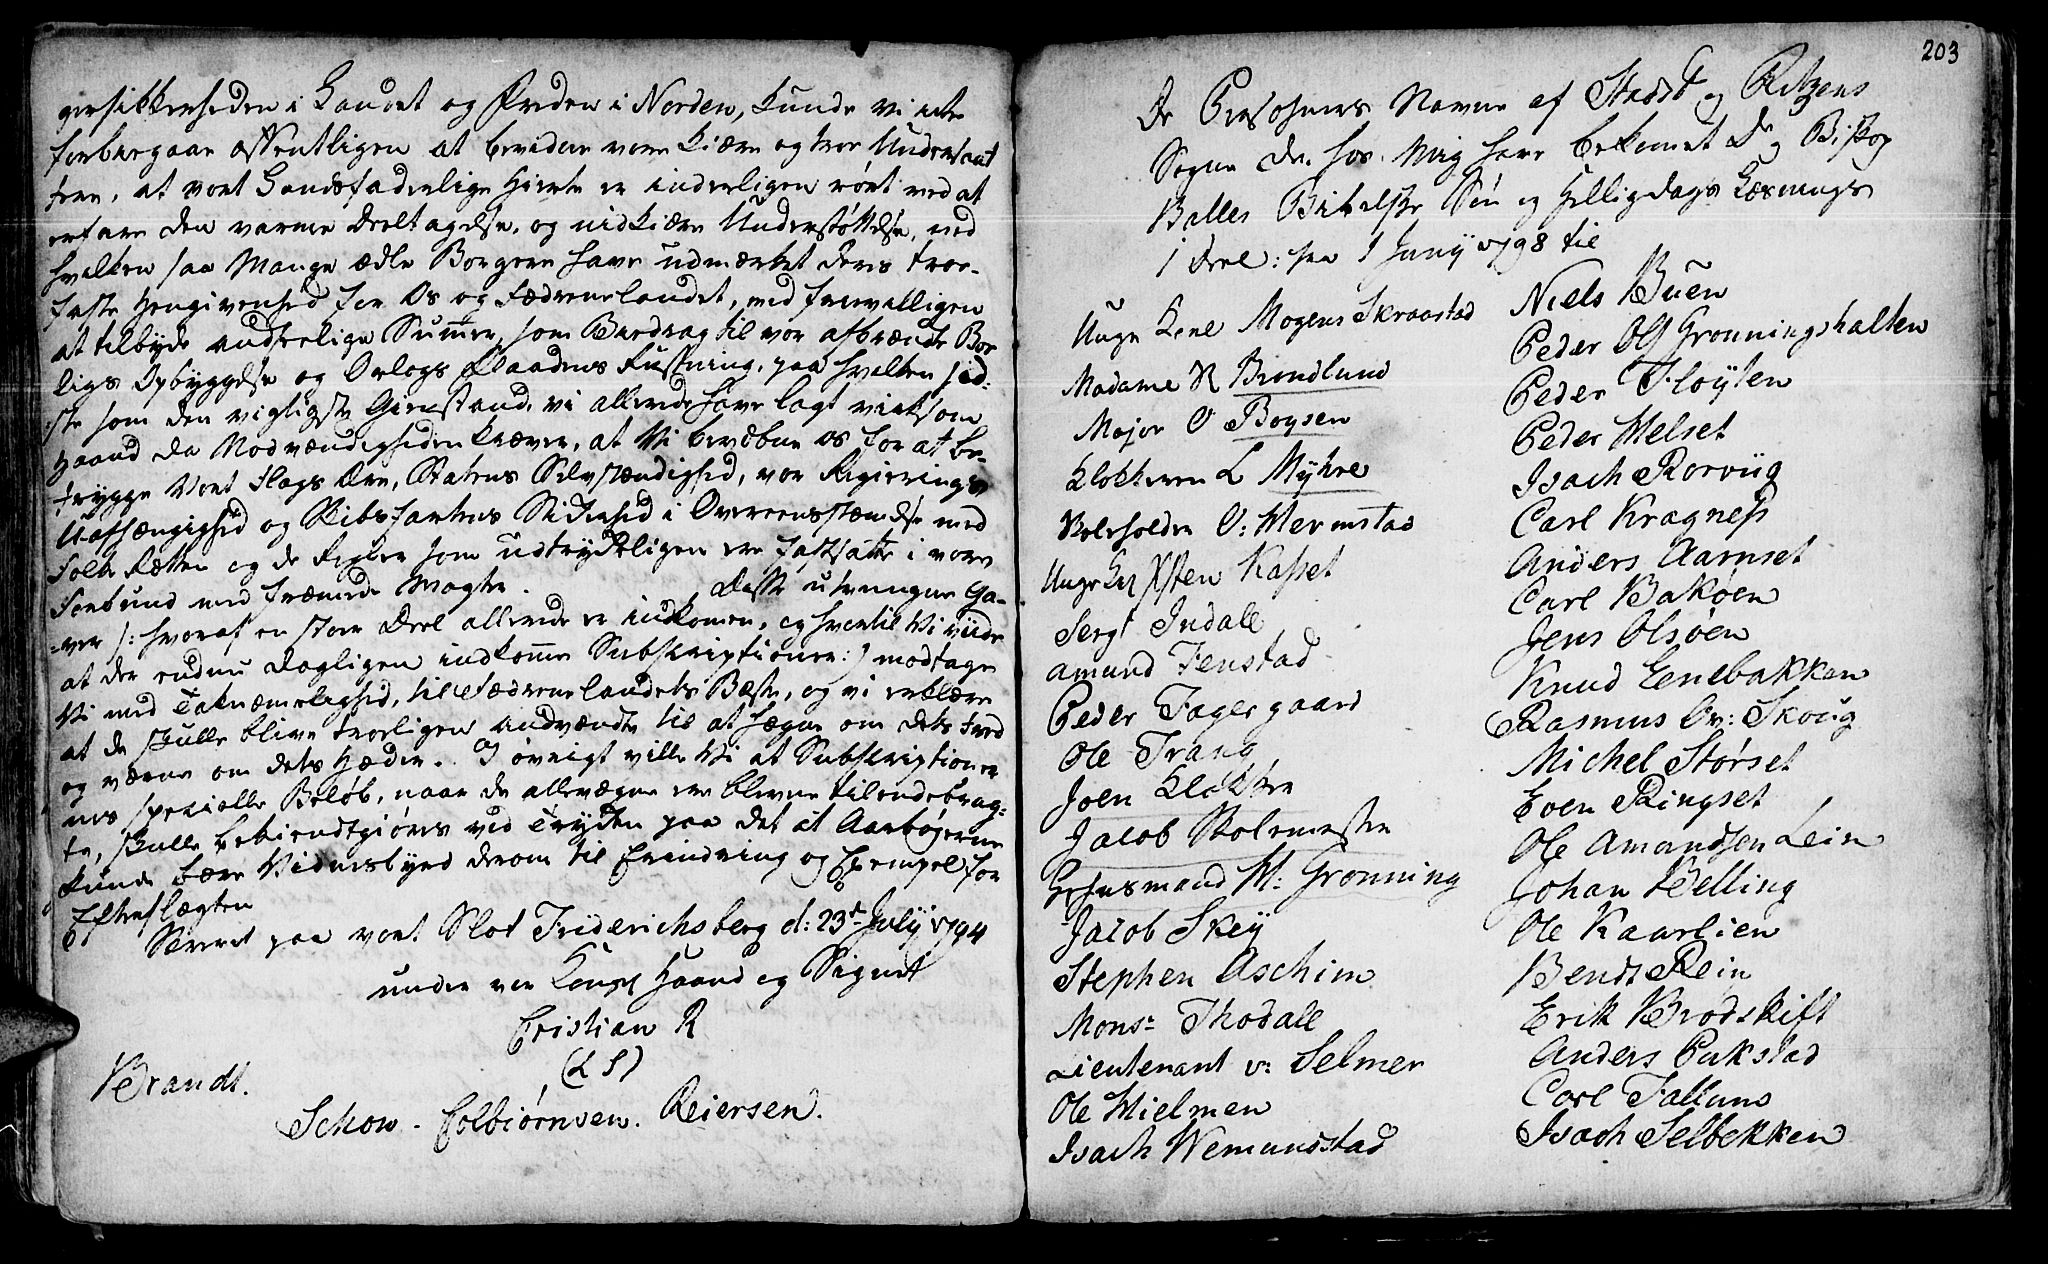 gersikkerheden i Landet og Freden i Norden, kunde vi ikke
forbiegaae offentligen at bevidne vore kiære og troe Undersaat
tere, at vort Landsfaderlige Hierte er inderligen rört ved at
erfare den varme Deeltagelse, og nidkiære Understøttelse, med
hvilken saa Mange ædle Borgere have udmærket deres troe-
faste Hengivenhed for Os og Fædrenelandet, med frievilligen
at tilbyde anseelige Summer, som Bidrag til vor afbrændte Bo
ligs Opbyggelse og Orlogs Flaadens Rustning, paa hvilken sid-
ste som den vigtigste Gienstand, vi allerede have lagt virksom
Haand da Nødvændigheden kræver, at Vi bevæbne os for at be-
trygge Vort Flags Ære, Statens Selvstændighed, vor Regierings
Uafhængighed og Skibsfartens Sikkerhed i Overeensstemmelse med
Folke Retten og de Regler som udtrykkeligen ere fastsatte i vore
Forbund med fremmede Magter. Disse utvungne Ga-
ver /: hvoraf en stor Deel allerede er indkommen, og hvortil Vi viide
at der endnu dagligen indkomme Subskriptioner :/ modtage
Vi med Taknemmelighed, til Fædrenelandets Bæste, og vi erklære
at de skulle blive troeligen anvendte til at sørge om dets Fred
og værne om dets Hæder. I øvrigt ville Vi at Subskriptioner
nes specielle Beløb, naar de allevegne ere blevne tilendebrag-
te, skulle bekiendtgiøres ved Trykken paa det at Aarbøgerne
kunde bære Vidnesbyrd derom til Erindring og Exempel for
Efterslægten
Skrevet paa vort Slot Friderichsberg d: 23de July 1794
under vor Kongel Haand og Signet
Cristian R
(L S)
Brandt.
Schow - Colbiørnsen. Reiersen.
203
De Persohners Navne af Stadsb og Ritzens
Sogne der hos Mig have bekomet D og Biskop
Balles Bibelske Søn og Helligdags Læsnings
1 Deel: fra 1 Juny 1798 til
Unge Lene Mogens Skraastad
Madame R Brondlund
Major O Boysen
Klokkeren L Myhre
Boleholder O: Mermstad
Unge Xsten Kasset
Sergt Indall
Amund Fenstad
Peder Fagergaard
Ole Trang
Joen Klokker
Jacob Skolemester
Gefusmand M: Gronning
Jacob Skey
Stephen Aschim
Monsr Thodall
Lieutenant v: Selmer
Ole Mielmen
Isach Wemundstad
Niels Buen
Peder Ols Gronningshalten
Peder Floyten
Peder Melset
Isach Rorviig
Carl Kragness
Anders Aarnset
Carl Bakøen
Jens Olsøen
Knud Enebakken
Rasmus Ov: Skoug
Michel Størset
Even Ringset
Ole Amandsen Lein
Johan Kelling
Ole Kaarlien
Bendt Rein
Erik Brodskift
Anders Pukstad
Carl Falluns
Isach Selbekken